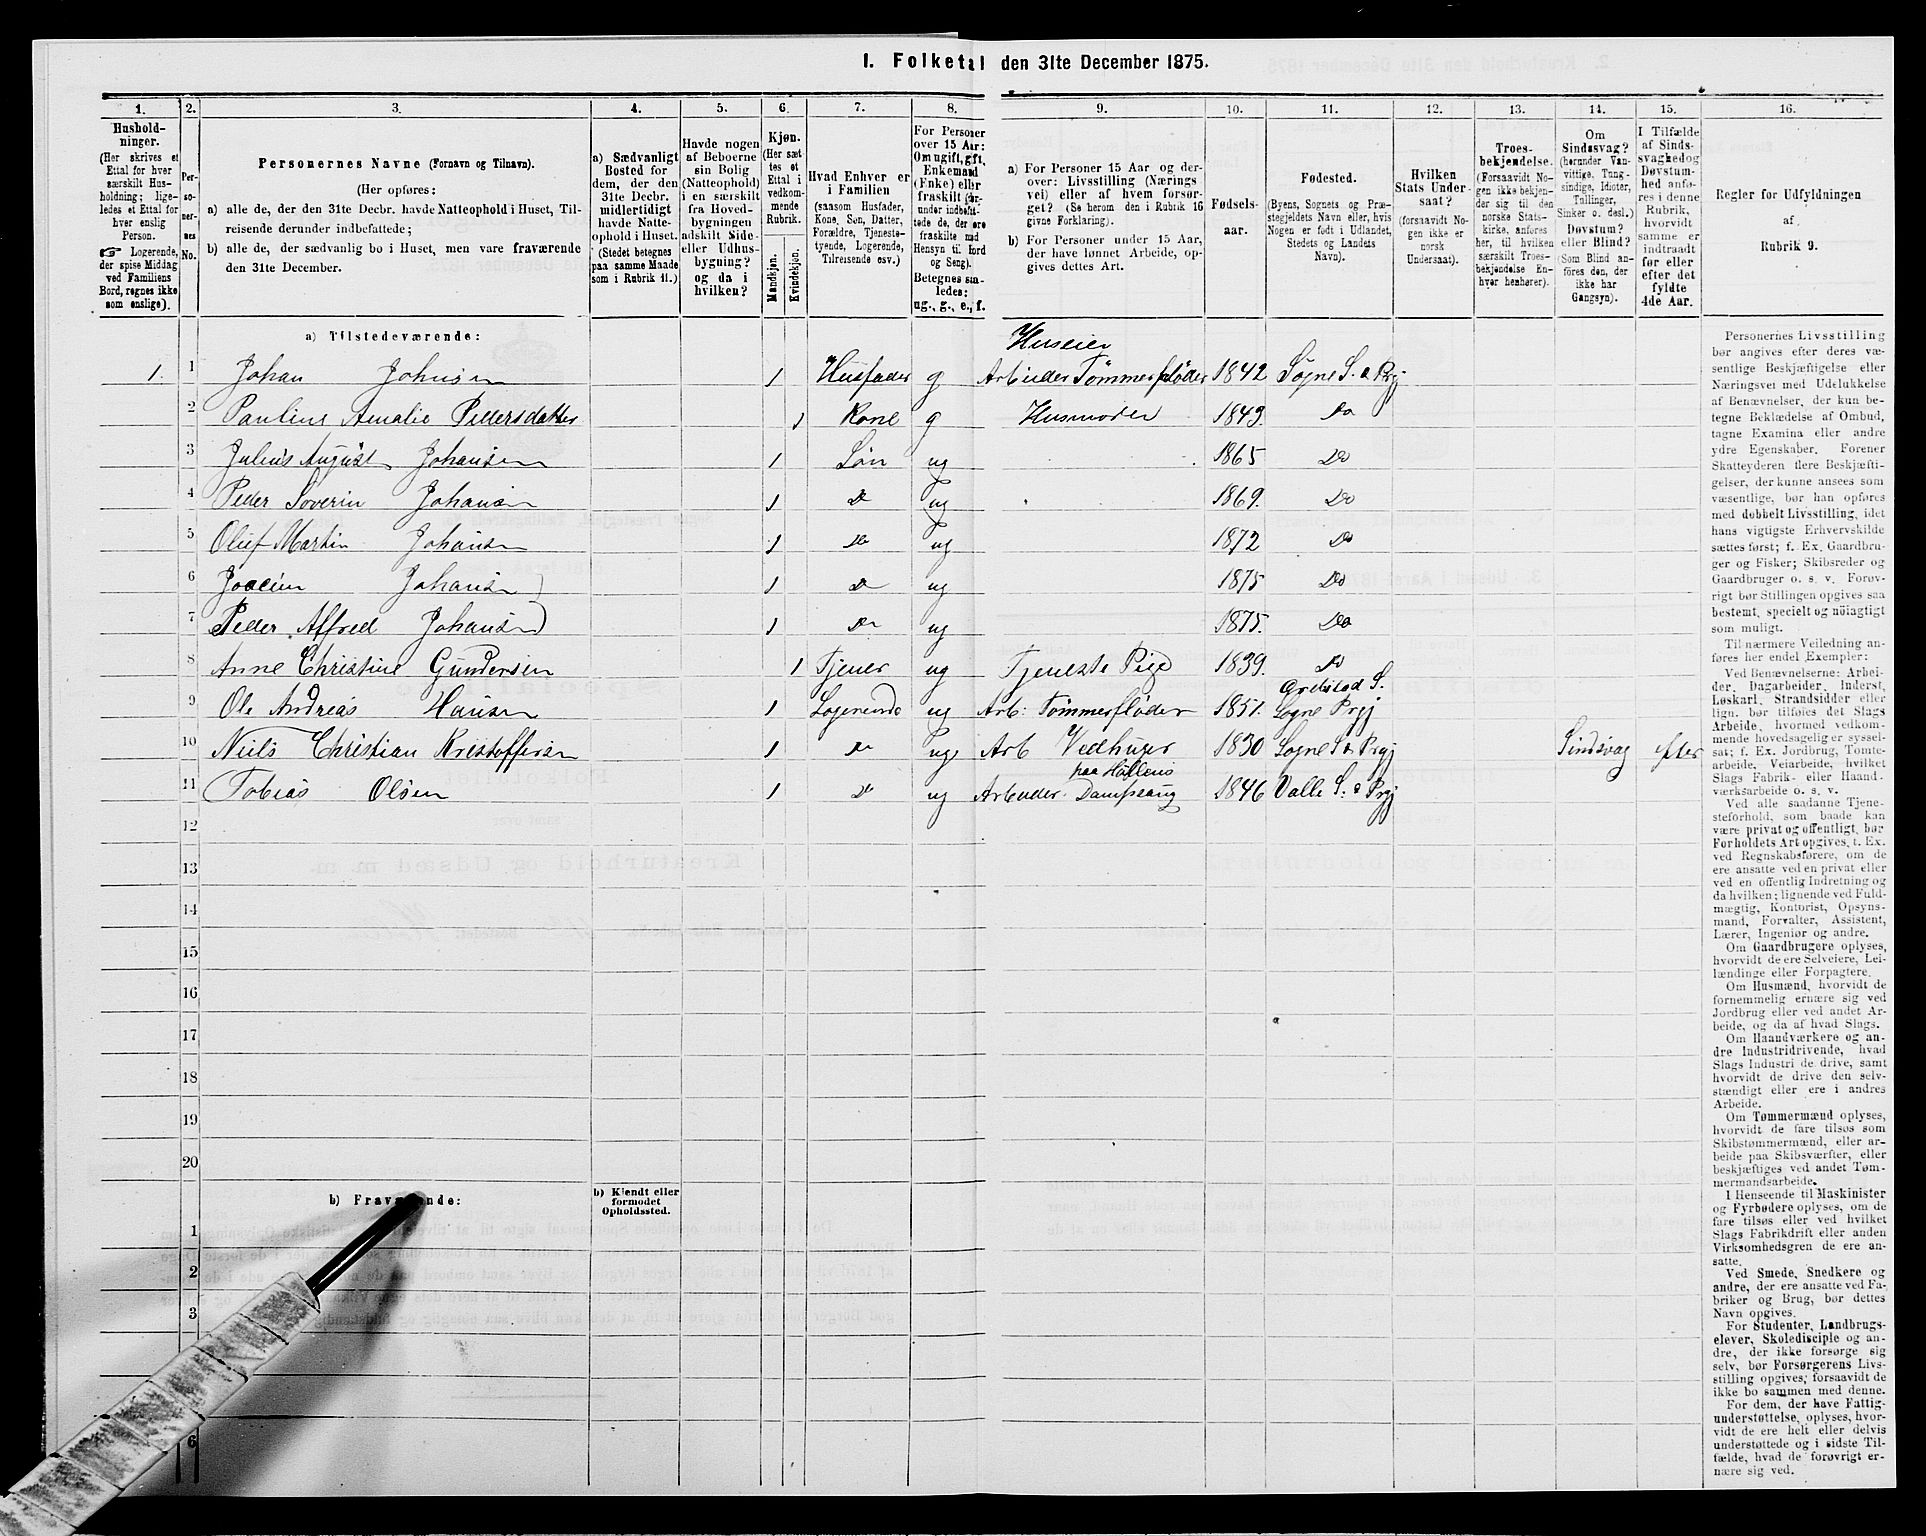 1. Folketal den 31te December 1875.
1. 2. 3. 4. 5. 6. 7. 8. 9. 10. 11. 12. 13. 14. 15. 16.
Hushold-
ninger.
(Her skrives et
Ettal for hver
særskilt Hus-
holdning; lige-
ledes et Ettal for
hver enslig
Person.
☞ Logerende,
der spise Middag
ved Familiens
Bord, regnes ikke
som enslige).
Per-
so-
ner-
nes
No.
Personernes Navne (Fornavn og Tilnavn).
(Her opføres:
a) alle de, der den 31te Decbr. havde Natteophold i Huset, Til-
reisende derunder indbefattede;
b) alle de, der sædvanlig bo i Huset, men vare fraværende
den 31te December.
a) Sædvanligt
Bosted for
dem, der den
31te Decbr.
midlertidigt
havde Natte-
ophold i Huset.
(Stedet betegnes
paa samme Maade
som i Rubrik 11.)
Havde nogen
af Beboerne
sin Bolig
(Natteophold)
i en særskilt
fra Hoved-
bygningen
adskilt Side-
eller Udhus-
bygning?
og da i
hvilken?
Kjøn.
(Her sæt-
tes et
Ettal i
vedkom-
mende
Rubrik.
Mandkjøn.
Kvindekjøn.
Hvad Enhver er
i Familien
(saasom Husfader,
Kone, Søn, Datter,
Forældre, Tjeneste-
tyende, Logerende,
Tilreisende osv.)
For Personer
over 15 Aar:
Om ugift, gift,
Enkemand
(Enke) eller
fraskilt (her-
under indbefat-
tede de, der ere
fraskilte med
Hensyn til Bord
og Seng).
Betegnes saa-
ledes:
ug., g., e., f.
a) For Personer 15 Aar og der-
over: Livsstilling (Nærings-
vei) eller af hvem forsør-
get? (Se herom den i Rubrik 16
givne Forklaring).
b) For Personer under 15 Aar,
der have lønnet Arbeide, op-
gives dettes Art.
Fødsels-
aar.
Fødested.
(Byens, Sognets og Præ-
stegjeldets Navn eller, hvis
Nogen er født i Udlandet,
Stedets og Landets
Navn).
Hvilken
Stats Under-
saat?
(forsaavidt No-
gen ikke er
norsk
Undersaat).
Troes-
bekjendelse.
(Forsaavidt No-
gen ikke bekjen-
der sig til den
norske Stats-
kirke, anføres
her, til hvilken
særskilt Troes-
bekjendelse En-
hver henhører).
Om
Sindssvag?
(herunder Van-
vittige, Tung-
sindige, Idioter,
Tullinger,
Sinker o. desl.)
Døvstum?
eller Blind?
(Som Blind an-
føres den, der
ikke har
Gangsyn).
I Tilfælde
af Sinds-
svaghed og
Døvstum-
hed anfø-
res i denne
Rubrik,
hvorvidt
samme er
indtraadt
før eller
efter det
fyldte
4de Aar.
Regler for Udfyldningen
af
Rubrik 9.
a) Tilstedeværende:
Huseier
1. 1 Johan Johnsen 1 Husfader g Arbeider Tømmerfløder 1842 Sogne S. & Prgj
2 Pauline Amalie Pedersdatter 1 Kone g Husmoder 1843. Do
3 Julius August Johansen 1 Søn ug 1865 Do
4 Peder Severin Johansen 1 Do ug 1869. Do
5 Oluf Martin Johansen 1 Do ug 1872 Do
6 Joacim Johansen 1 Do ug 1875 Do
7 Peder Alfred Johansen 1 Do ug 1875. Do
8 Anne Christine Gundersen 1 Tjener ug Tjeneste Pige 1839. Do
Grebstad S.
9 Ole Andreas Hansen 1 Logerende ug Arb: Tømmerfløder 1851. Sogne Prgj
10 Niels Christian Kristoffersen 1 Do ug Arb Vedhuger 1830 Sogne S & Prgj Sindsvag efter
paa Höllens
11 Tobias Olsen 1 Do ug Arbeider Dampsaug 1846 Valle S. & Prgj
12
13
14
15
16
17
18
19
20
b) Fraværende:
b) Kjendt eller
formodet
Opholdssted.
1
2
3
6
Personernes Livsstilling
bør angives efter deres væ-
sentlige Beskjæftigelse eller
Næringsvei med Udelukkelse
af Benævnelser, der kun be-
tegne Beklædelse af Ombud,
tagne Examina eller andre
ydre Egenskaber. Forener
Skatteyderen flere Beskjæfti-
gelser, der kunne ansees som
væsentlige, bør han opføres
med dobbelt Livsstilling, idet
hans vigtigste Erhvervskilde
sættes først; f. Ex. Gaardbru-
ger og Fisker; Skibsreder og
Gaardbruger o. s. v. Forøv-
rigt bør Stillingen opgives saa
bestemt, specielt og nöiagtigt
som muligt.
Til nærmere Veiledning an-
føres her endel Exempler:
Ved Benævnelserne: Arbei-
der, Dagarbeider, Inderst,
Løskarl, Strandsidder eller
lign. bør tilføies det Slags
Arbeide, hvormed vedkom-
mende hovedsagelig er syssel-
sat; f. Ex. Jordbrug, Tomte-
arbeide, Veiarbeide, hvilket
Slags Fabrik- eller Haand-
værksarbeide o. s. v.
Ved alle saadanne Tjene-
steforhold, som baade kan
være privat og offentligt, bør
Forholdets Art opgives, t. Ex.
ved Regnskabsførere, om de
ere ansatte ved en privat eller
ved en offentlig Indretning og
da hvilken; lignende ved Fuld-
mægtig, Kontorist, Opsyns-
mand, Forvalter, Assistent,
Lærer, Ingeniør og andre.
Om Gaardbrugere oplyses,
hvorvidt de ere Selveiere, Lei-
lændinge eller Forpagtere.
Om Husmænd, hvorvidt de
fornemmelig ernære sig ved
Jordbrug eller ved andet Ar-
beide, og da af hvad Slags.
Om Haandværkere og an-
dre Industridrivende, hvad
Slags Industri de drive, samt
hvorvidt de drive den selv-
stændigt eller ere i andres
Arbeide.
Om Tømmermænd oplyses,
hvorvidt de fare tilsøs som
Skibstømmermænd, eller ar-
beide paa Skibsværfter, eller
beskjæftiges ved andet Tøm-
mermandsarbeide.
I Henseende til Maskinister
og Fyrbødere oplyses, om de
fare tilsøs eller ved hvilket
Slags Fabrikdrift eller anden
Virksomhedsgren de ere an-
satte.
Ved Smede, Snedkere og
andre, der ere ansatte ved Fa-
briker og Brug, bør dettes
Navn opgives.
For Studenter, Landbrugs-
elever, Skoledisciple og an-
dre, der ikke forsørge sig
selv, bør Forsørgerens Livs-
stilling opgives, forsaavidt de
ikke bo sammen med denne.
For dem, der have Fattig-
understøttelse, oplyses, hvor-
vidt de ere helt eller delvis
understøttede og i sidste Til-
fælde, hvad de forøvrigt er-
nære sig ved.